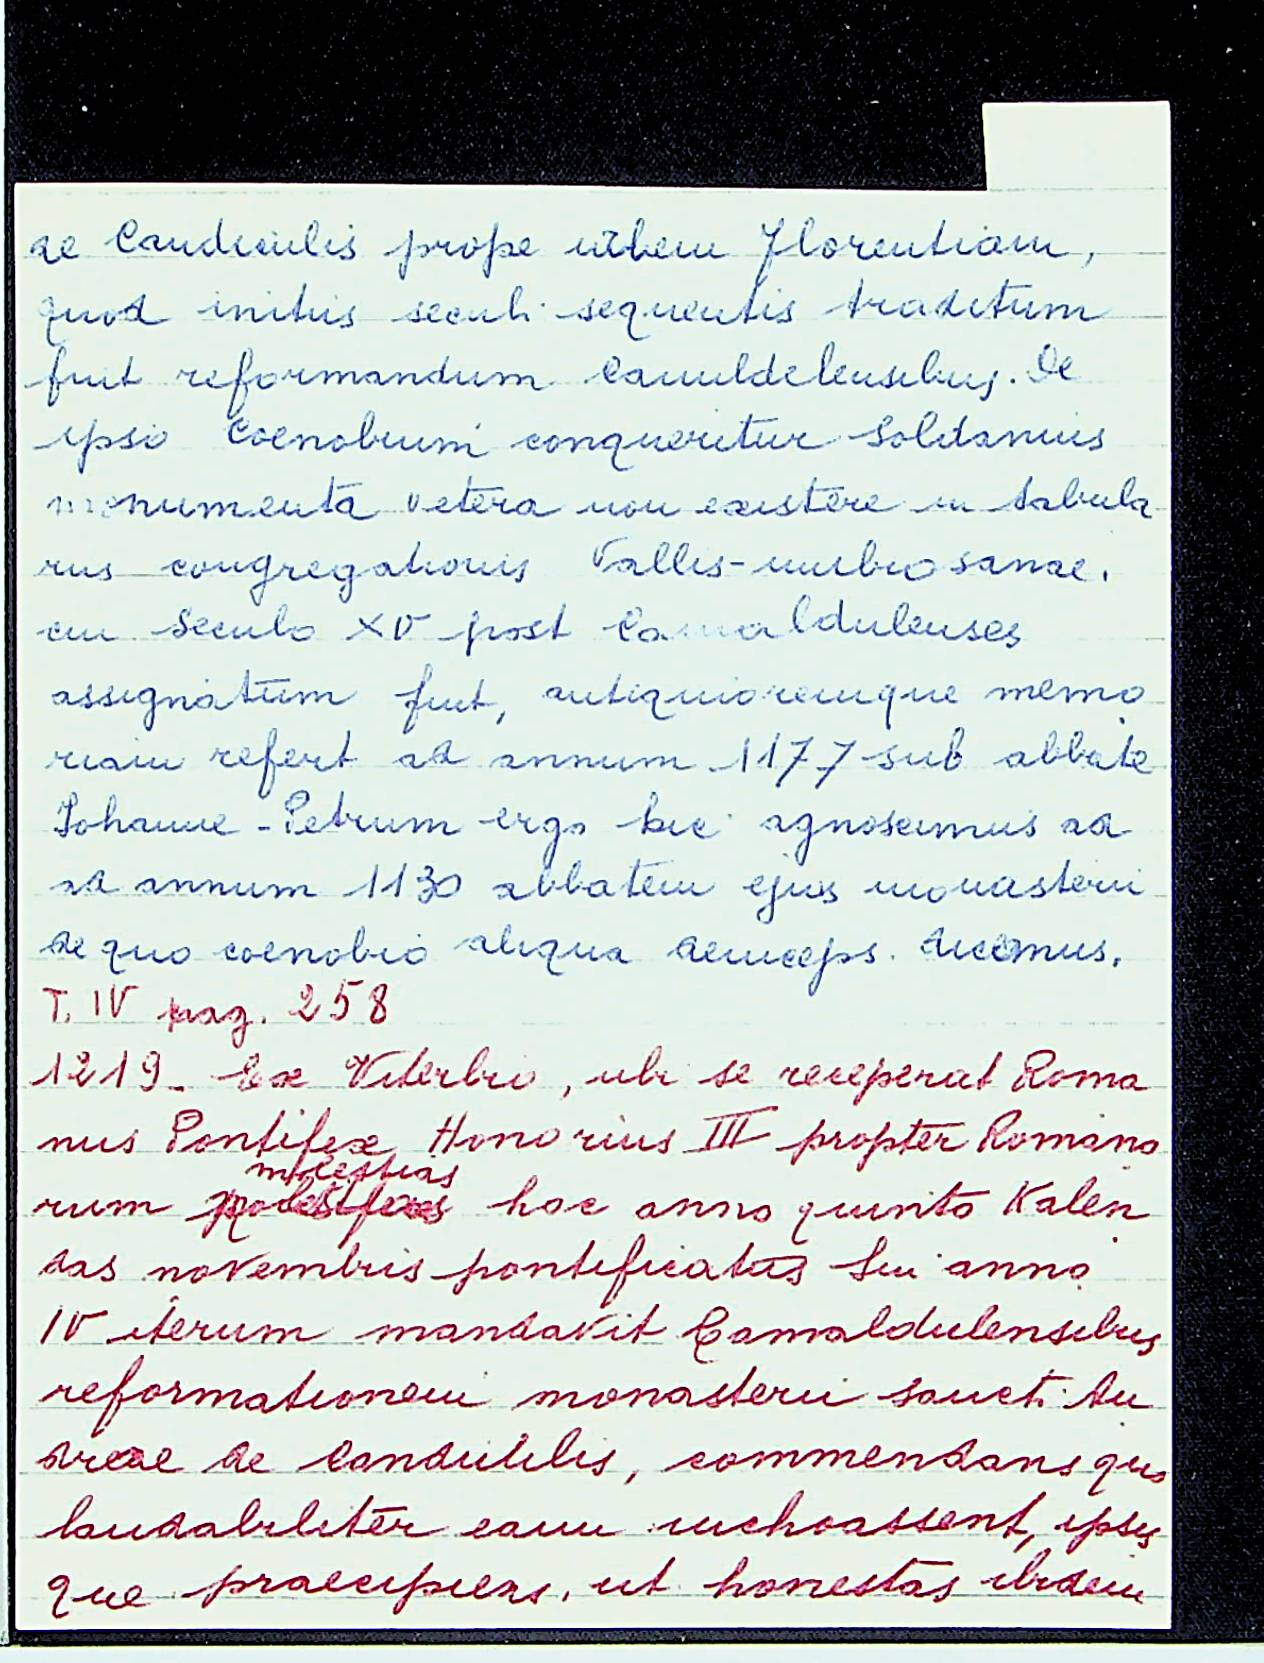 de Candiculis prope urbem Florentiam,
quod initiis seculi sequentis traditum
fuit reformandum Camuldelensibus. De
ipso Coenobium conqueritur Soldanius
monumenta vetera non existere in tabula
riis congregationis Vallis-umbrosanae.
cui Seculo XV post Camaldulenses
assignatum fuit, antiquioremque memo
riam refert ad annum 1177 sub abbate
Iohanne - Petrum ergo hic agnoscimus ad
ad annum 1130 abbatem ejus monasterii
de quo coenobio aliqua deinceps. dicemus.
T. IV pag. 258
1219_ Ex Viterbio, ubi se receperat Roma
nus Pontifex Honorius III propter Romano
molestias
rum hoc anno quinto Kalen
das novembris pontificatus Sui anno
IV iterum mandavit Camaldulensibus
reformationem monasterii sancti An
dreae de Candiculis, commendans quo
laudabiliter eam inchoassent, ipsis
que praecipiens. ut honestas ibidem